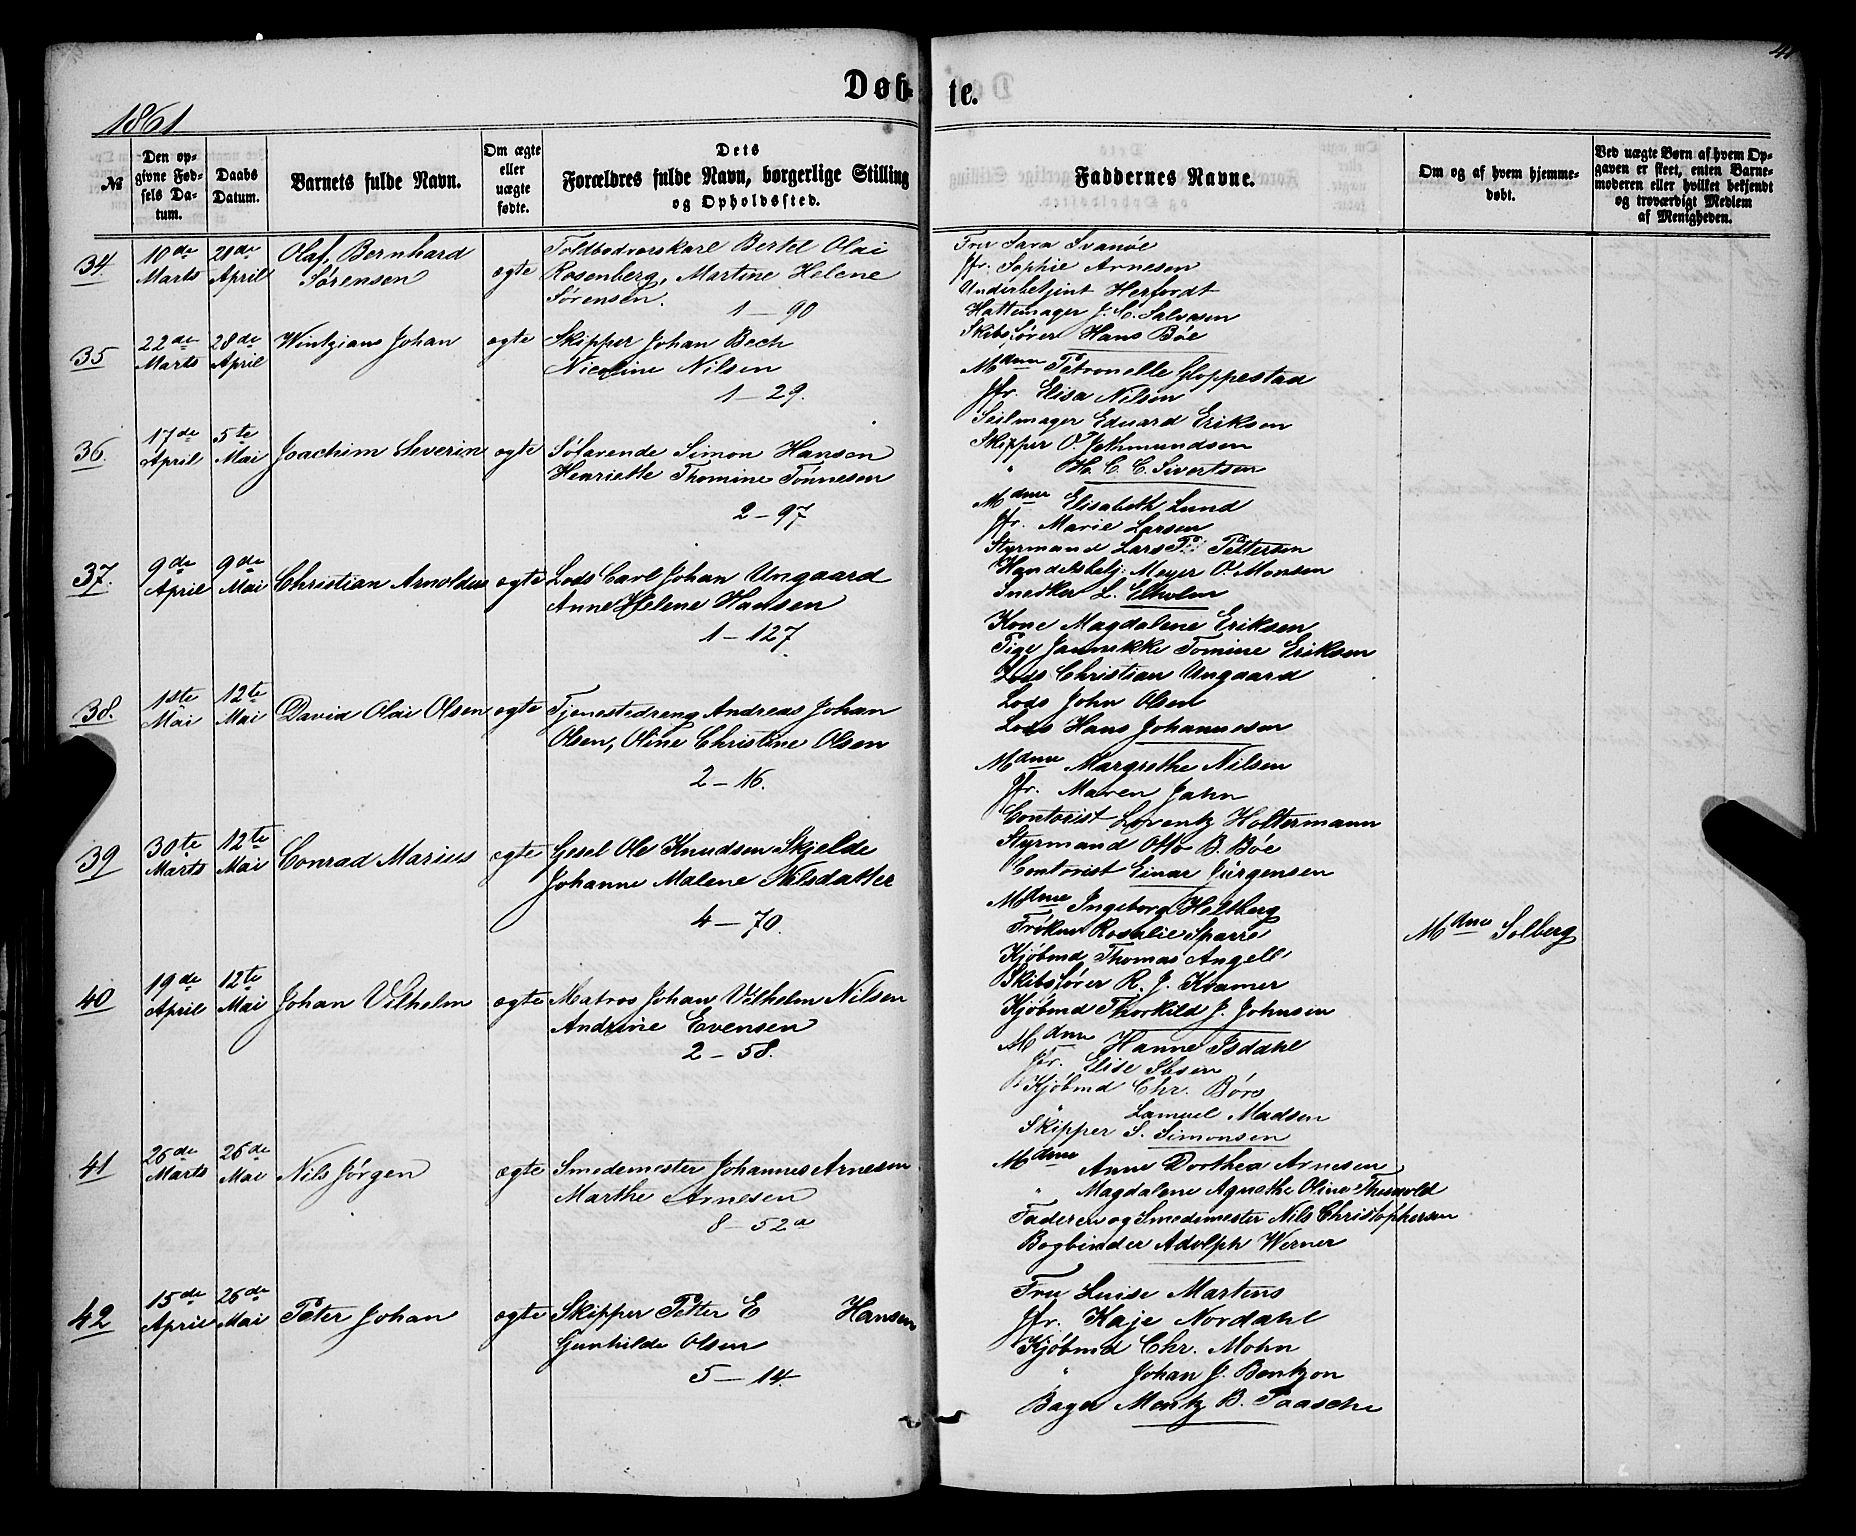 41
Døb-
te.
1861
№
Den op-
givne Fød-
sels Da-
tum.
Daabs
Datum.
Barnets fulde Navn.
Om ægte
eller
uægte
fødte.
Dets
Forældres fulde Navn, borgerlige Stilling
og Opholdssted.
Faddernes Navne.
Om og af hvem hjemme-
døbt.
Ved uægte Børn af hvem Op-
gaven er skeet, enten Barne-
moderen eller hvilket bekjendt
og troværdigt Medlem
af Menigheden.
34.
10de
Marts
21de
April
Olaf Bernhard
Sørensen
ægte
Toldbodvorskarl Bertel Olai
Rosenberg, Martine Helene
Sørensen.
1 – 90
Fru Sara Svanöe
Jfr. Sophie Arnesen
Underbetjent Herfordt
Hattemager J. C. Salvesen
Skibsfører Hans Böe
35
22de
Marts
28de
April
Wintzians Johan
ægte
Skipper Johan Bech
Nicoline Nilsen
1 – 29.
Mdme Petronelle Gloppestad
Jfr. Elisa Nilsen
Seilmager Eduard Eriksen
Skipper O. Jethmundsen
" H. C. C. Sivertsen
36.
17de
April
5te
Mai
Joachim Severin
ægte
Søfarende Simon Hansen
Henriette Thomine Tønnesen
2 – 97
Mdme Elisabeth Lund
Jfr. Marie Larsen
Styrmand Lars P. Pettersen
Handelsbetj: Meyer O. Monsen
Snedker L. Elholm
37.
9de
April
9de
Mai
Christian Arnoldus
ægte
Lods Carl Johan Ungaard
Anne Helene Hansen
1 – 127
Kone Magdalene Eriksen
Pige Jannikke Tomine Eriksen
Lods Christian Ungaard
Lods John Olsen
Lods Hans Johannesen
38.
1ste
Mai
12te
Mai
David Olai Olsen
ægte
Tjenestedreng Andreas Johan
Olsen, Oline Christine Olsen
2 – 16.
Mdme Margrethe Nilsen
Jfr. Maren Jahn
Contorist Lorentz Holtermann
Styrmand Otto B. Böe
Contorist Einar Jürgensen
39
30te
Marts
12te
Mai
Conrad Marius
ægte
Gesel Ole Knudsen Skjelde
Johanne Malene Nilsdatter
4 – 70.
Mdme Ingeborg Holtberg
Frøken Rosalie Sparre
Kjøbmd Thomas Angell
Skibsfører R. J. Kramer
Kjøbmd Thorkild J. Johnsen
Mdme Solberg
40
19de
April
12te
Mai
Johan Vilhelm
ægte
Matros Johan Vilhelm Nilsen
Andrine Evensen
2 – 58.
Mdme Hanne Isdahl
Jfr. Elise Ibsen
Kjøbmd Chr. Börs
" Samuel Madsen
Skipper S. Simonsen
41
26de
Marts
26de
Mai
Nils Jørgen
ægte
Smedemester Johannes Arnesen
Marthe Arnesen
8 – 52a
Mdme Anne Dorthea Arnesen
" Magdalene Agnethe Oline
Faderen og Smedemester Nils Christophersen
Bogbinder Adolph Werner
42
15de
April
26de
Mai
Peter Johan
ægte
Skipper Petter E Hansen
Gunhilde Olsen
5 – 14.
Fru Luise Martens
Jfr. Kaje Nordahl
Kjøbmd Chr. Mohn
" Johan J. Bentzon
Bager Mentz B. Paasche